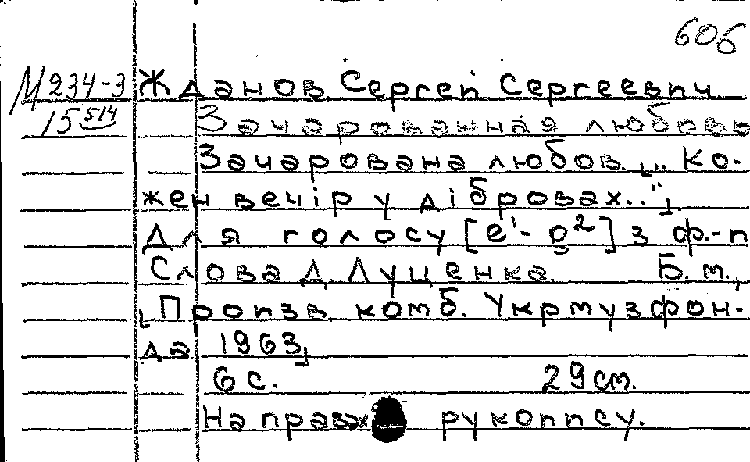 606
М 234-3 Жданов Сергей Сергеевич
15 514 Зачарованная любовь
Зачарована любов. „Ко-
жен вечір у дібровах.."
Для голосу [e¹- g²] з ф.-п
Слова Д. Луценка Б.м.,
[Произв. комб. Укрмузфон-
да 1963]
6 с. 29 см.
На правах рукопису.